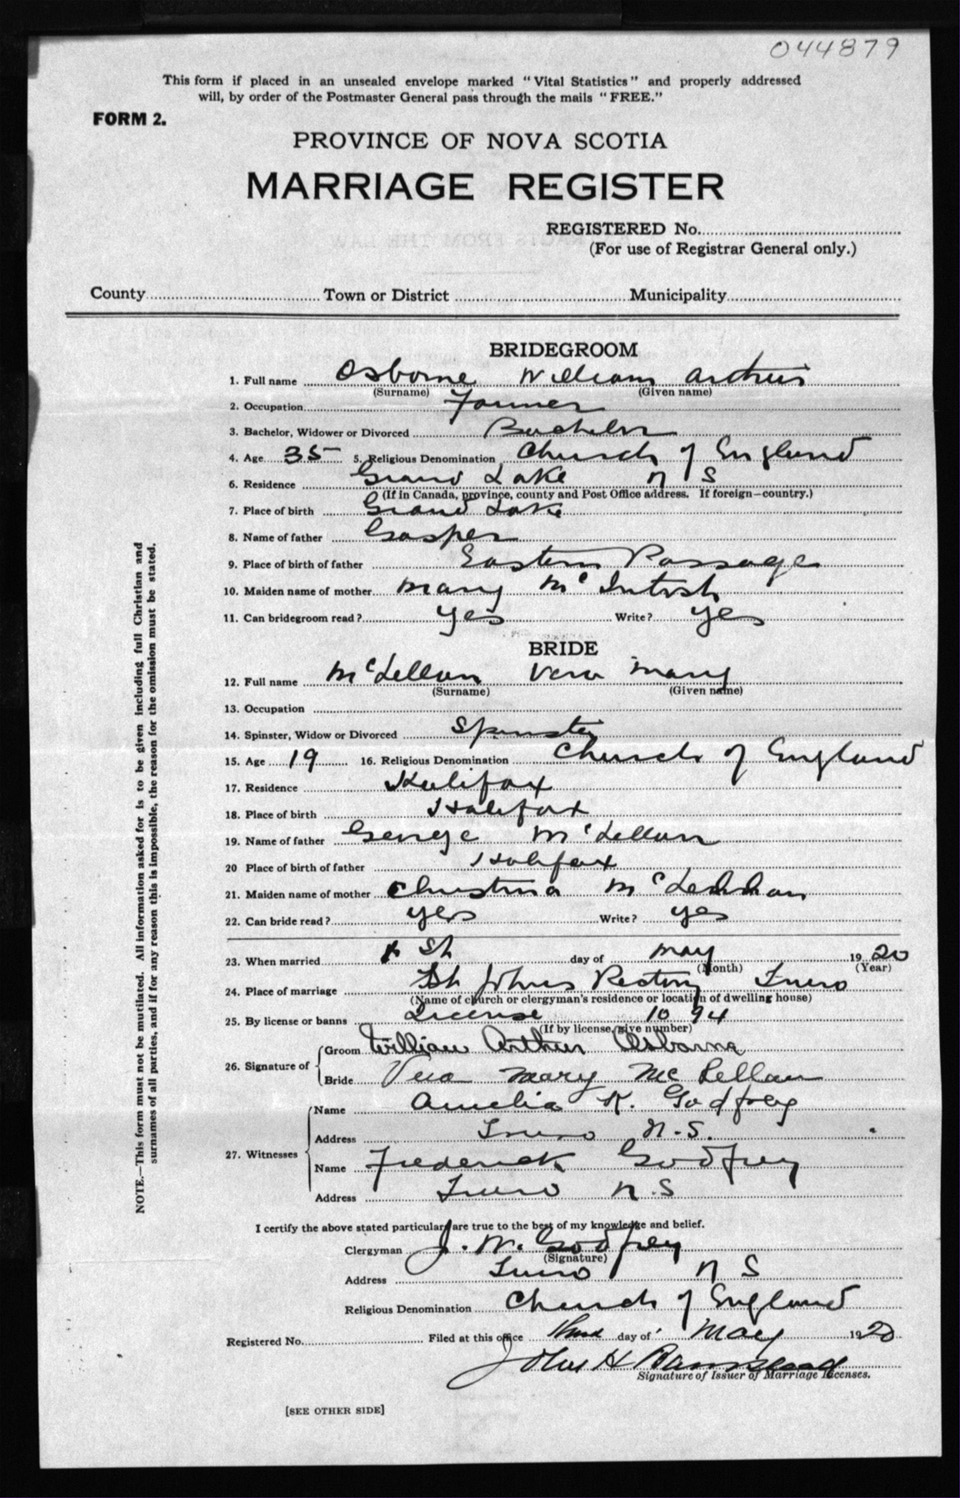 044879
This form if placed in an unsealed envelope marked "Vital Statistics" and properly addressed
will, by order of the Postmaster General pass through the mails "FREE."
FORM 2.
PROVINCE OF NOVA SCOTIA
MARRIAGE REGISTER
REGISTERED No.
(For use of Registrar General only.)
County Town or District Municipality
BRIDEGROOM
1. Full name Osborne William Arthur
(Surname) (Given name)
2. Occupation Farmer
3. Bachelor, Widower or Divorced Bachelor
4. Age 35 5. Religious Denomination Church of England
6. Residence Grand Lake N S
(If in Canada, province, county and Post Office address. If foreign—country.)
7. Place of birth Grand Lake
8. Name of father Gasper
9. Place of birth of father Eastern Passage
10. Maiden name of mother Mary McIntosh
11. Can bridegroom read? yes Write? yes
BRIDE
12. Full name McLellan Vera Mary
(Surname) (Given name)
13. Occupation
14. Spinster, Widow or Divorced Spinster
15. Age 19 16. Religious Denomination Church of England
17. Residence Halifax
18. Place of birth Halifax
19. Name of father George McLellan
20 Place of birth of father Halifax
21. Maiden name of mother Christina
22. Can bride read? yes Write? yes
23. When married day of May 1920
(Month) (Year)
24. Place of marriage St Johns Rectory Truro
(Name of church or clergyman's residence or location of dwelling house)
25. By license or banns License 1094
(If by license, give number)
26. Signature of
Groom William Arthur Osborne
Bride Vera Mary McLellan
27. Witnesses
Name Amelia K. Godfrey
Address Truro N.S.
Name Frederick Godfrey
Address Truro N.S
I certify the above stated particulars are true to the best of my knowledge and belief.
Clergyman J. W. Godfrey
(Signature)
Address Truro N S
Religious Denomination Church of England
Registered No. Filed at this office day of May 1920
John H
Signature of Issuer of Marriage Licenses.
[SEE OTHER SIDE]
NOTE.—This form must not be mutilated. All information asked for is to be given including full Christian and
surnames of all parties, and if for any reason this is impossible, the reason for the omission must be stated.